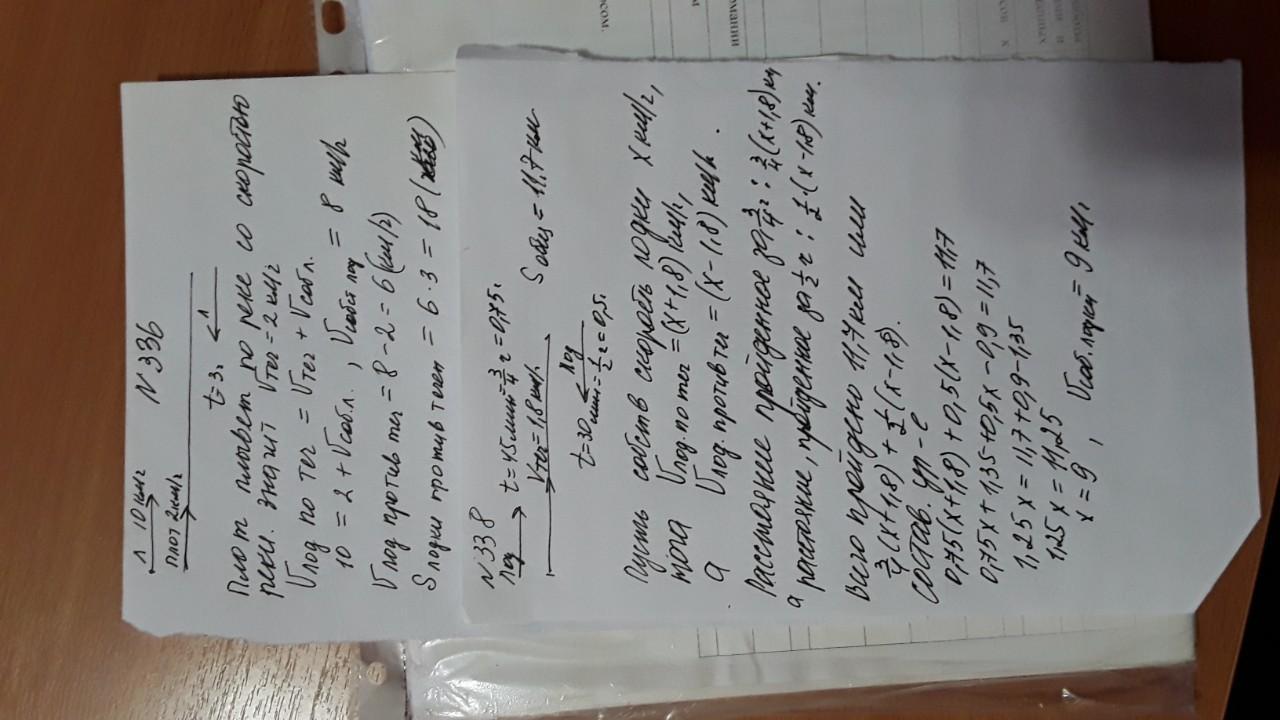 N 336
л 10 км/г
плот 2 км/г
t=3г л
Плот плывет по реке со скоростью
реки. значит Vтег = 2 км/г
Vлод по тег = Vтег + Vсобл.
10 = 2 + Vсобл. , Vсобст лод = 8 км/г
Vлод против тег = 8 - 2 = 6 (км/г)
S лодки против течен = 6 · 3 = 18 (км)
N 338
лод t = 45 мин = 3/4 г = 0,75г.
Vтег = 1,8 км/г. S общ = 11,7 км
лод
t=30 мин = 1/2 г = 0,5г.
Пусть собств скорость лодки х км/г,
тога Vлод по тег = (х + 1,8) км/г,
а Vлод. против тг = (х - 1,8) км/г.
Расстояние пройденное за 3/4 г : 3/4 (х+1,8) км
а растояние, пройденое за 1/2 г : 1/2 · (х - 1,8) км.
Всего пройдено 11,7 км или
3/4 (х+1,8) + 1/2 (х - 1,8).
Состав. ур-е
0,75 (х+1,8) + 0,5 (х - 1,8) = 11,7
0,75х + 1,35 + 0,5х - 0,9 = 11,7
1,25 х = 11,7 + 0,9 - 1,35
1,25 х = 11,25
х = 9 , Vсоб. лодки = 9 км/г
сом.